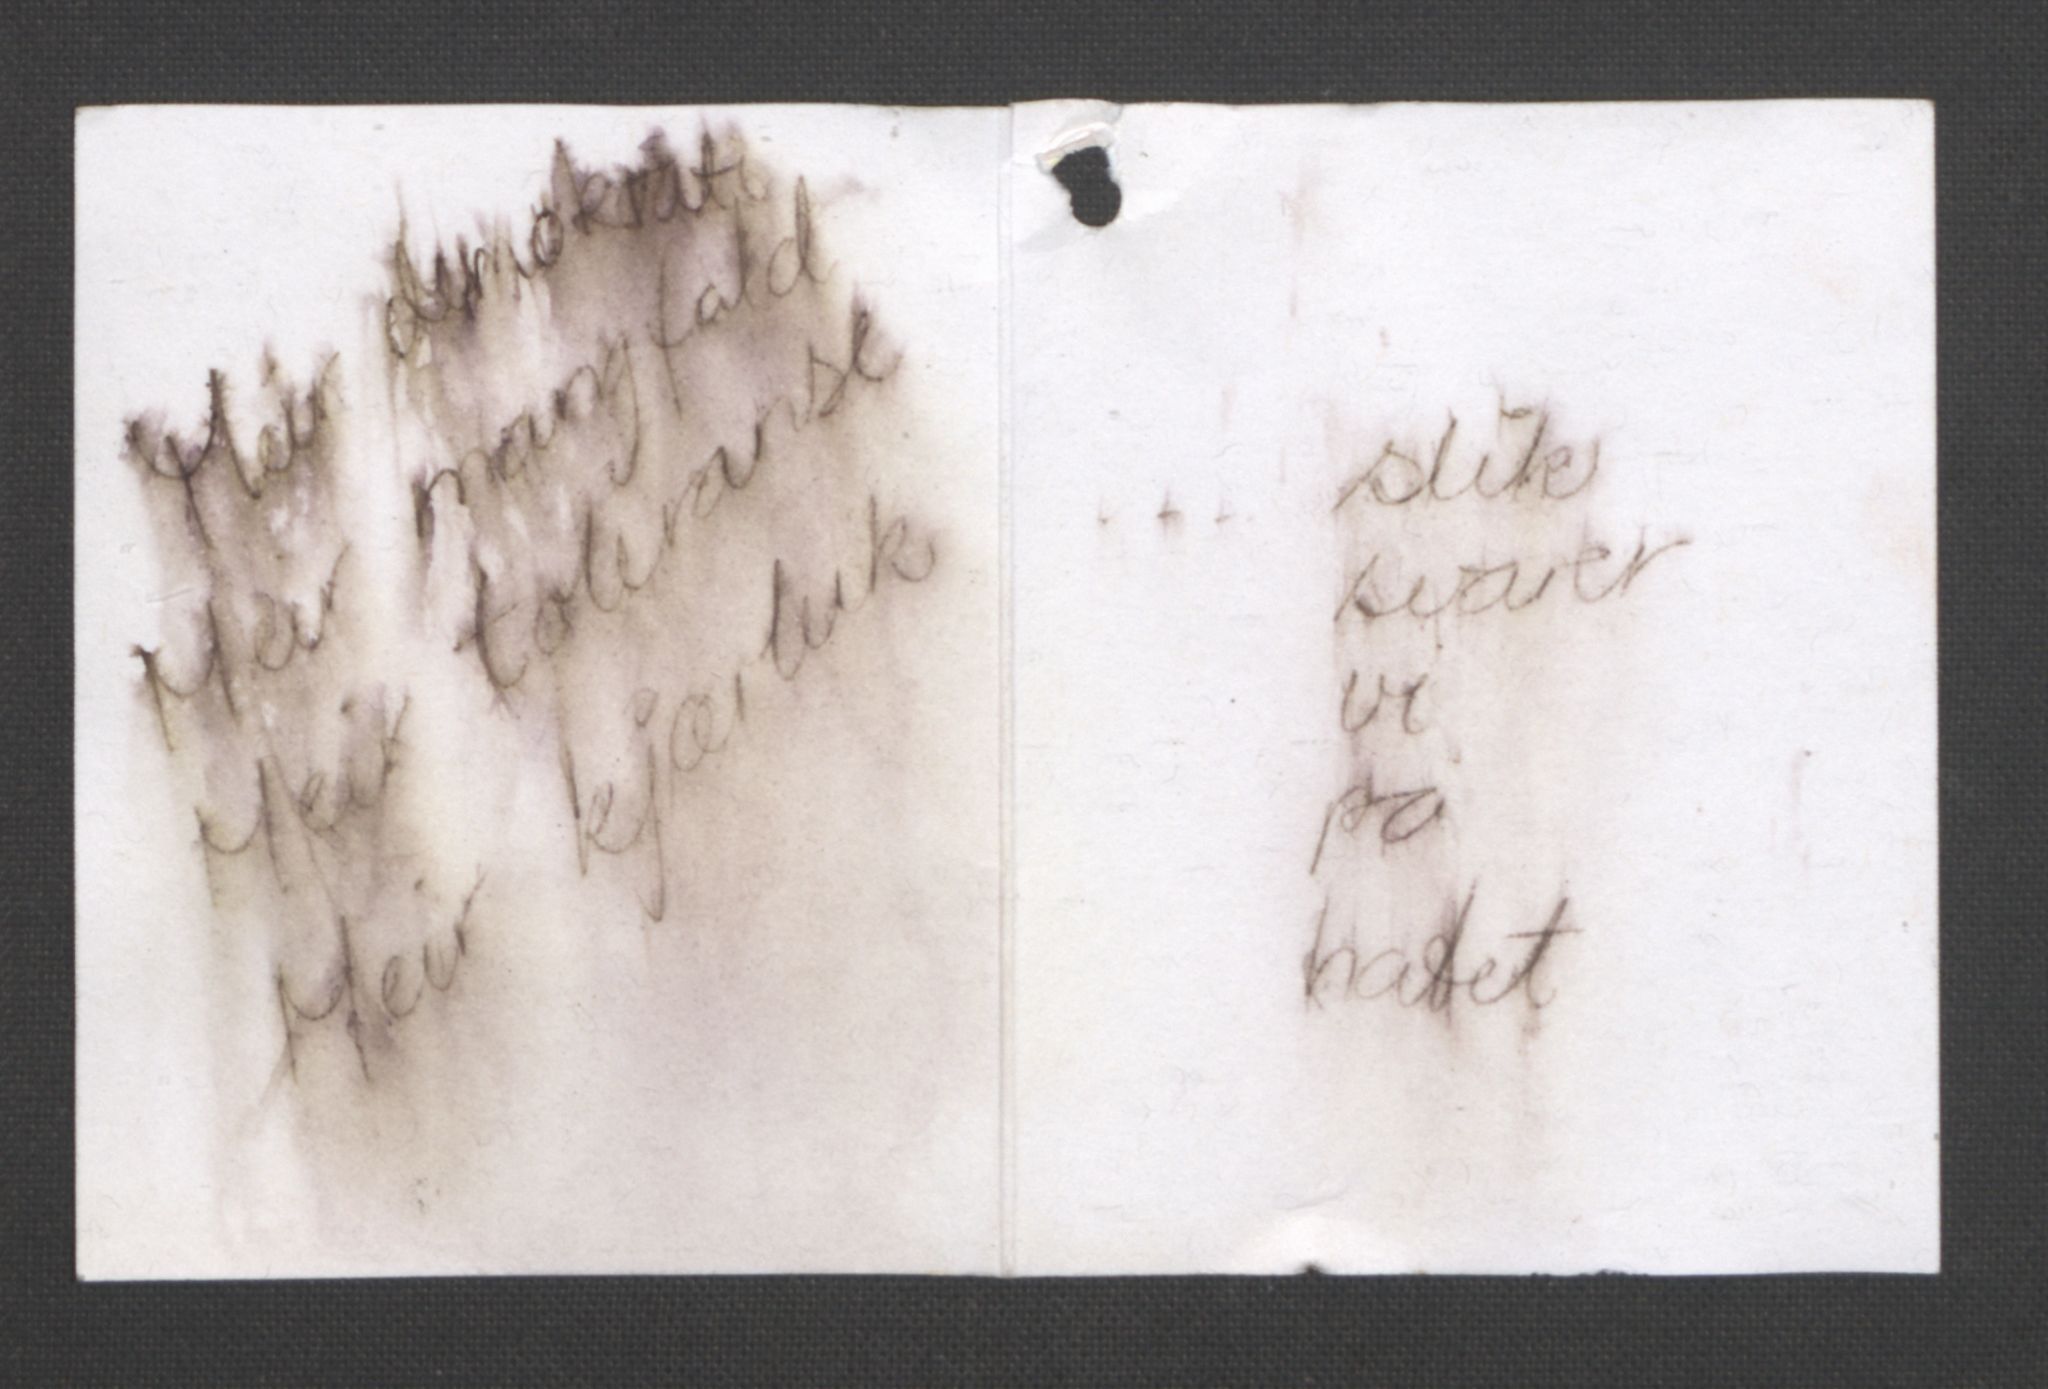 Meir demokrati
Meir mangfald
Meir toleranse
Meir kjærleik
... slik
svarer
vi
på
hatet